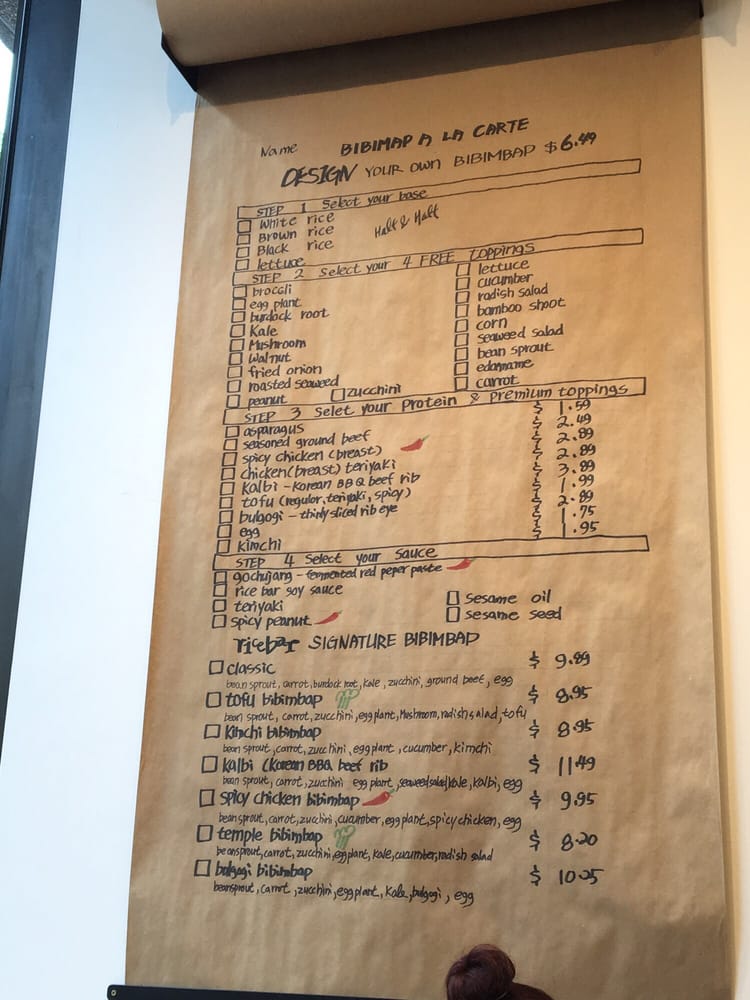 Name BIBIMAP A LA CARTE
DESIGN YOUR OWN BIBIMBAP $6.49
STEP 1 Select your base
White rice
Brown rice
Black rice
Half & Half
lettuce
STEP 2 Select your 4 FREE toppings
broccli
egg plant
burdock root
Kale
Mushroom
Walnut
fried onion
roasted seaweed
peanut
zucchini
lettuce
cucumber
radish salad
bamboo shoot
corn
seaweed salad
bean sprout
edamame
carrot
STEP 3 Selet your Protein & Premium toppings
asparagus $ 1.59
seasoned ground beef $ 2.49
spicy chicken (breast) $ 2.89
chicken(breast) teriyaki $ 2.89
Kalbi - Korean BBQ beef rib $ 3.89
tofu (regular, teriyaki, spicy) $ 1.99
bulgogi - thinly sliced rib eye $ 2.89
egg $ 1.75
kimchi $ 1.95
STEP 4 Select your Sauce
gochujang - fermented red peper paste
rice bar soy sauce
teriyaki
spicy peanut
sesame oil
sesame seed
ricebar SIGNATURE BIBIMBAP
classic $ 9.89
bean sprout, carrot, burdock root, Kale, zucchini, ground beef, egg
tofu bibimbap $ 8.95
bean sprout, carrot, zucchini, egg plant, Mushroom, radish salad, tofu
Kimchi bibimbap $ 8.95
bean sprout, carrot, zucchini, egg plant, cucumber, kimchi
Kalbi (Korean BBQ beef rib $ 11.49
bean sprout, carrot, zucchini egg plant, seaweed salad, kale, kalbi, egg
spicy chicken bibimbap $ 9.95
bean sprout, carrot, zucchini, cucumber, egg plant, spicy chicken, egg
temple bibimbap $ 8.20
beansprout, carrot, zucchini, egg plant, kale, cucumber, radish salad
bulgogi bibimbap $ 10.25
beansprout, carrot, zucchini, egg plant, Kale, bulgogi, egg